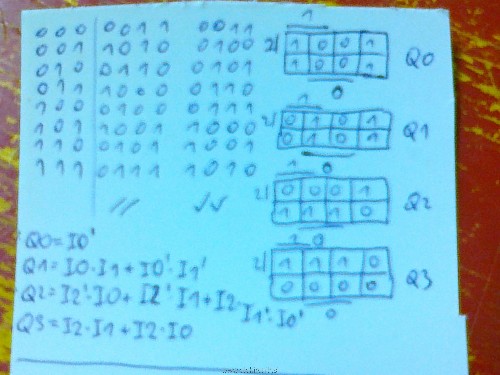 000 0011 0011
001 1010 0100
010 0110 0101
011 1000 0110
100 0111
101 1001 1000
110 0101 1001
111 0111 1010
// ✓✓
Q0=I0'
Q1=I0·I1+I0'·I1'
Q2=I2'·I0+I2'·I1+I2·I1'·I0'
Q3=I2·I1+I2·I0
1
2
1 0 0 1
1 0 0 1
Q0
0
1
2
0 1 0 1
0 1 0 1
Q1
1 0
2
0 0 0 1
1 1 1 0
Q2
1 0
2
1 1 1 0
0 0 0 0
Q3
0